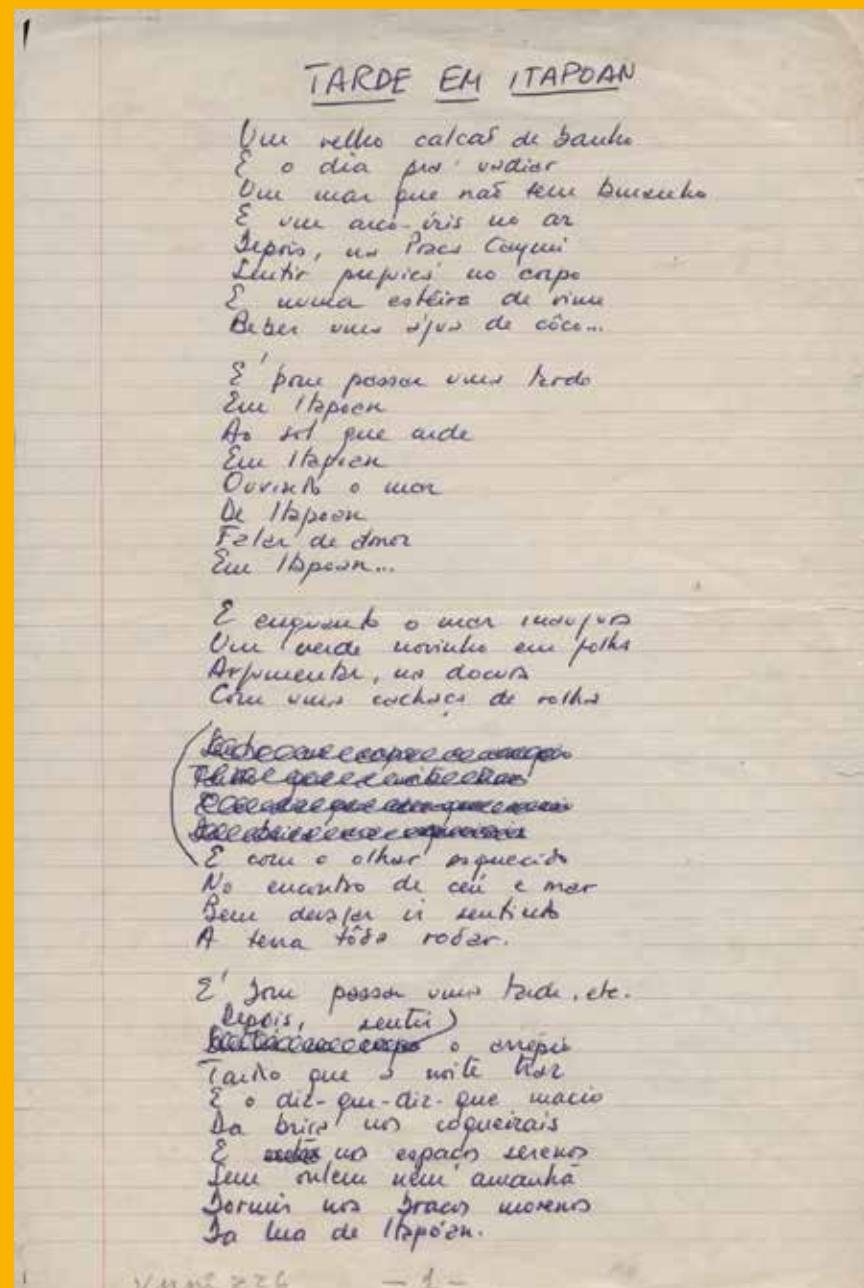 TARDE EM ITAPOAN
Um velho calcaõ de banho
E o dia pra' vadiar
Um mar que naõ tem tamanho
E um arco-íris no ar
Depois, na Praça Caymi
Sentir preguiça no corpo
E numa esteira de vime
Beber uma água de côco...
É bom passar uma tarde
Em Itapoan
Ao sol que arde
Em Itapoan
Ouvindo o mar
De Itapoan
Falar de amor
Em Itapoan...
E enquanto o mar inaugura
Um verde novinho em folha
Argumentar, na doçura
Com uma cachaça de rolha
E com o olhar esquecido
No encontro de céu e mar
Bem devagar ir sentindo
A terra tôda rodar.
É bom passar uma tarde, etc.
Depois, sentir
o arrepio
que a noite traz
E o diz-que-diz-que macio
Da brisa nos coqueirais
E nos espaços serenos
Sem ontem nem amanhã
Dormir nos braços morenos
Da lua de Itapóan.
- 1 -